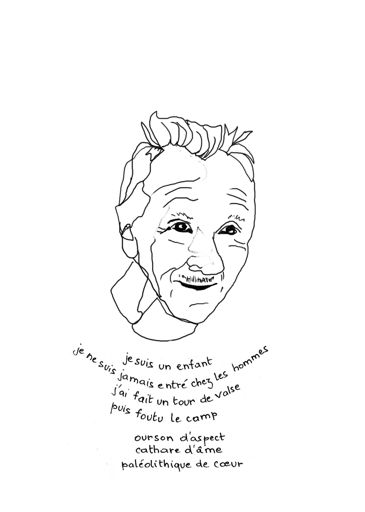 je suis un enfant
je ne suis jamais entré chez les hommes
j'ai fait un tour de valse
puis foutu le camp
ourson d'aspect
cathare d'âme
paléolithique de cœur